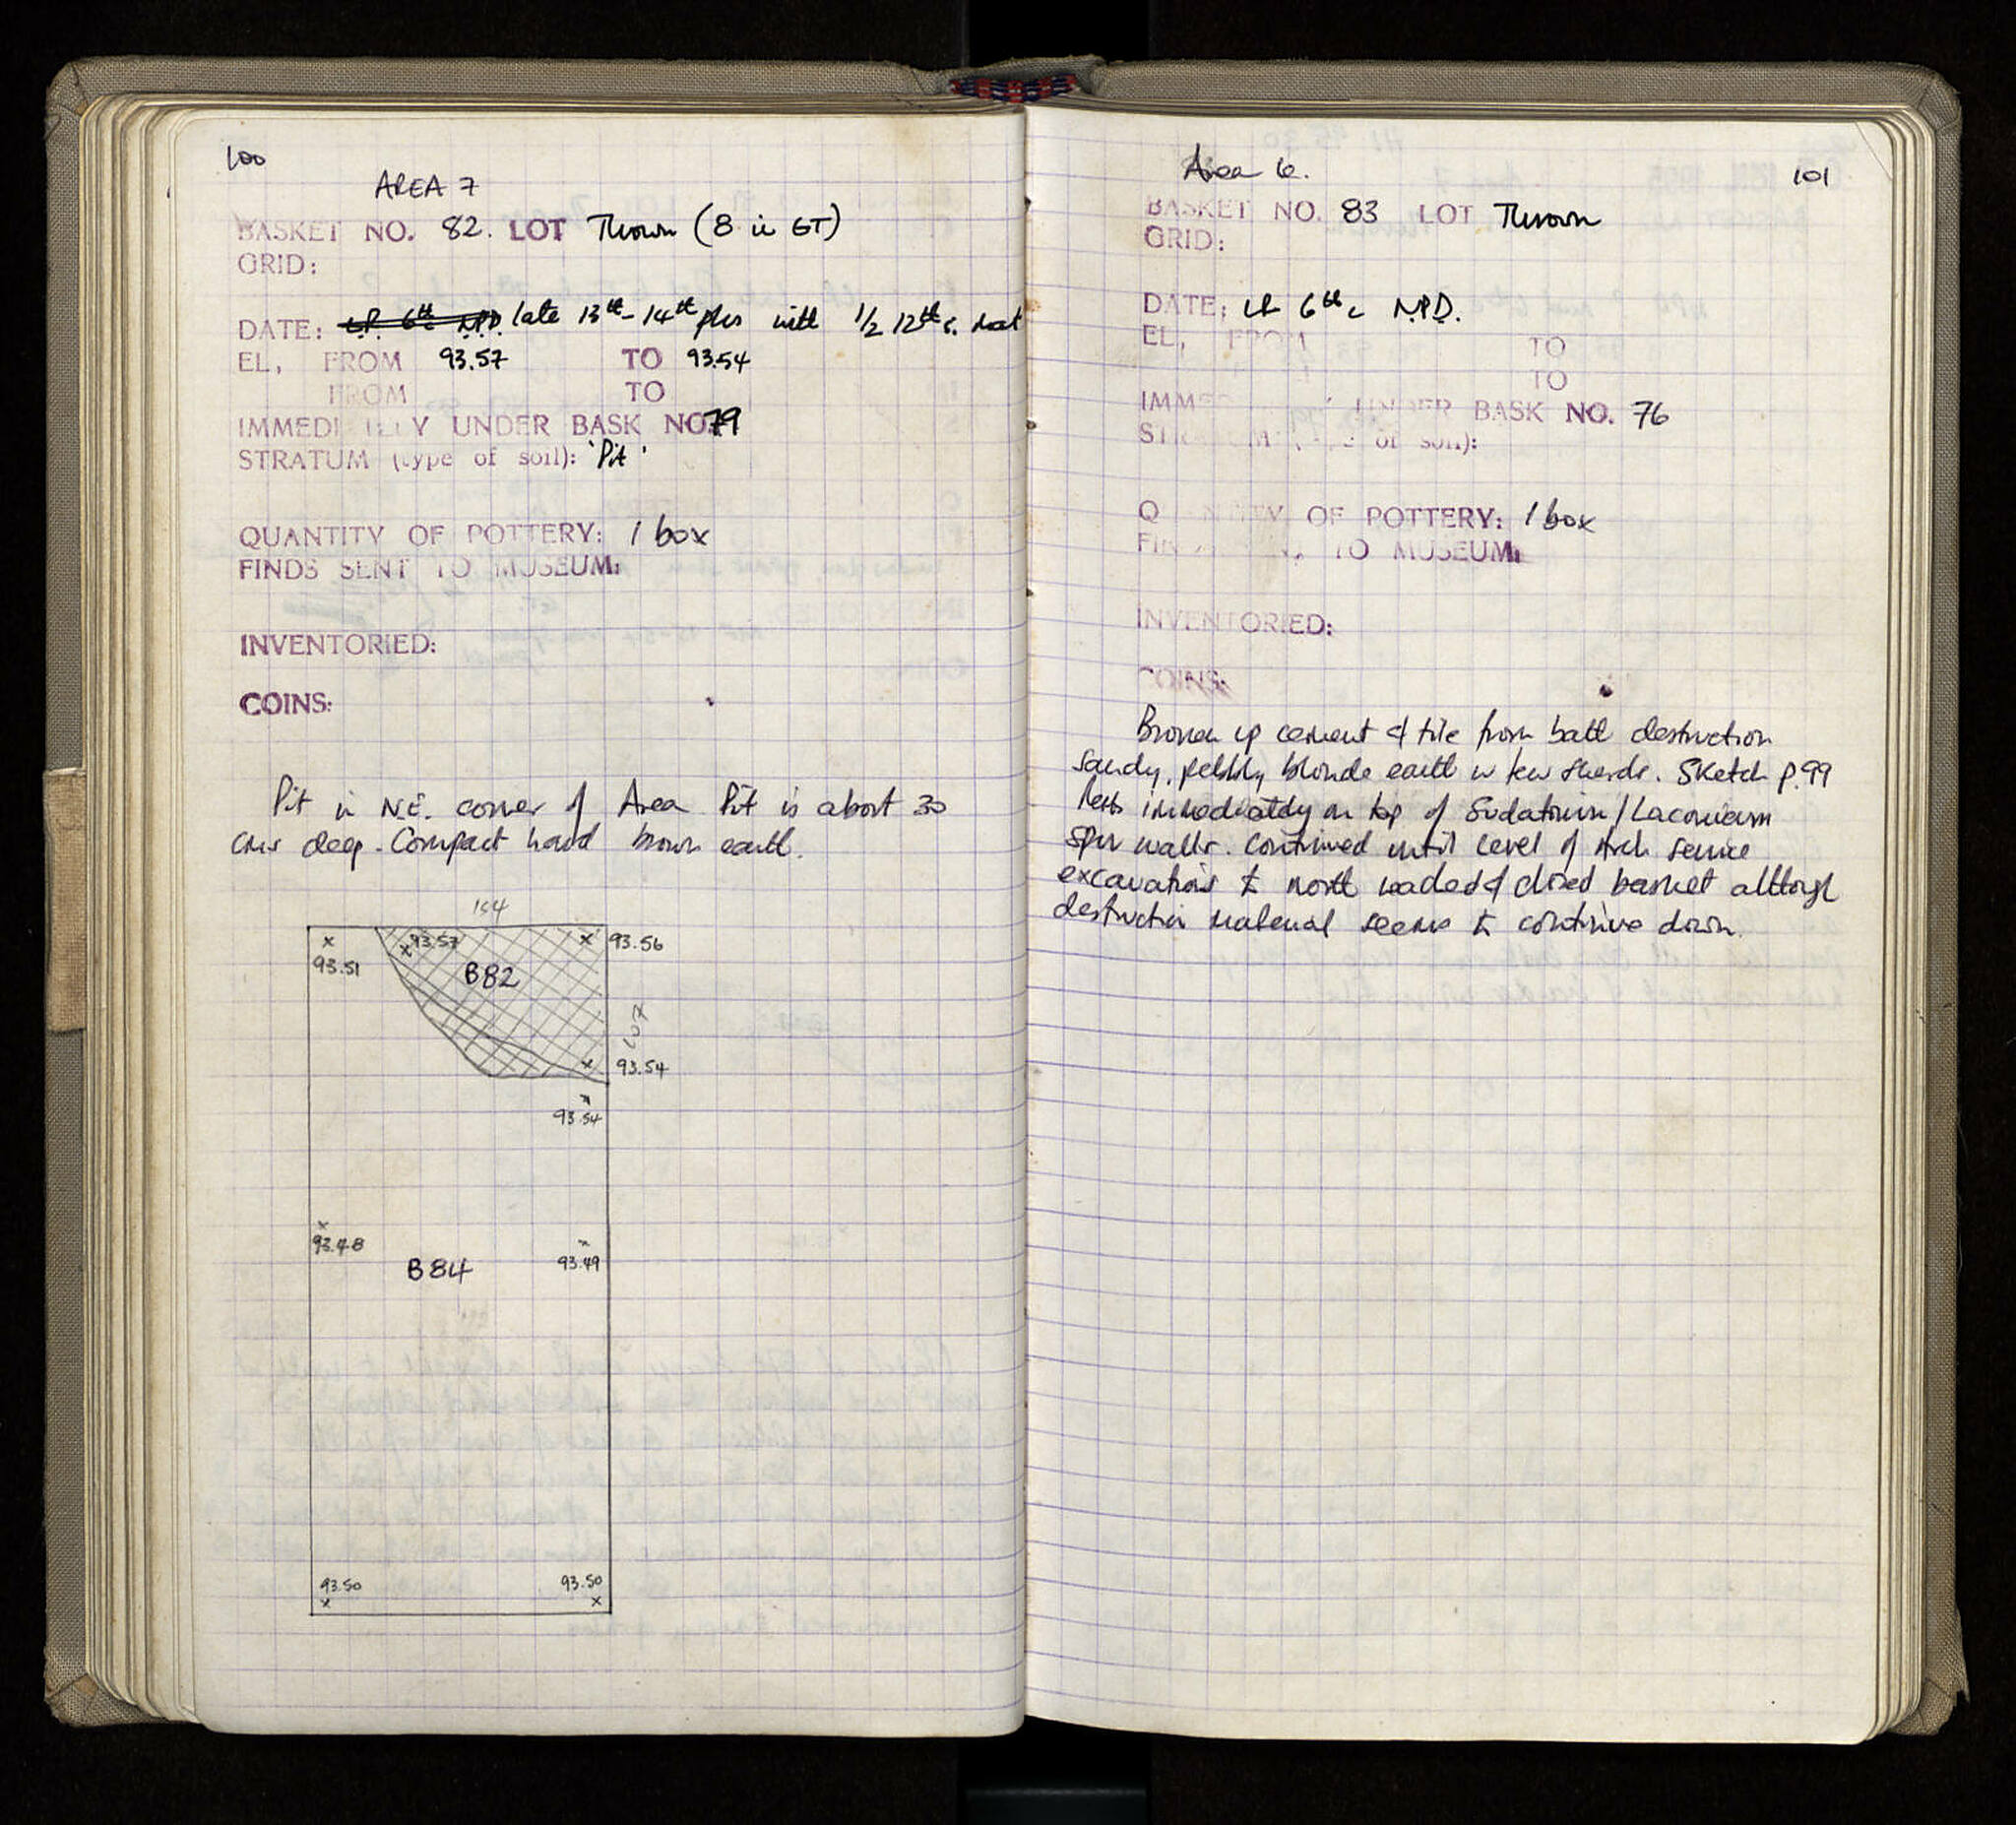 100
AREA 7
BASKET NO. 82. LOT Thrown (8 in GT)
GRID:
DATE: L.R. 6th c N.P.D. late 13th-14th plus with 1/2 12th c.
EL, FROM 93.57 TO 93.54
FROM TO
IMMEDI TELY UNDER BASK NO. 79
STRATUM (type of soil): 'Pit'
QUANTITY OF POTTERY: 1 box
FINDS SENT TO MUSEUM:
INVENTORIED:
COINS:
Pit in N.E. corner of Area Pit is about 30
cms deep. Compact hard brown earth.
93.57
93.56
93.51
B82
107
93.54
93.54
93.48
93.49
B84
93.50 93.50
101
Area 6.
BASKET NO. 83 LOT Thrown
GRID:
DATE: LR 6th c N.P.D.
EL, FROM TO
TO
IMME UNDER BASK NO. 76
STRATUM (type of soil):
QUANTITY OF POTTERY: 1 box
FINDS SENT TO MUSEUM:
INVENTORIED:
COINS:
Broken up cement & tile from bath destruction
Sandy, pebbly blonde earth w few sherds. Sketch p.99
immediately on top of Sudatorium/Laconicum
spur walls. Continued until level of Arch service
excavations to north reached & closed basket although
destruction material seems to continue down.